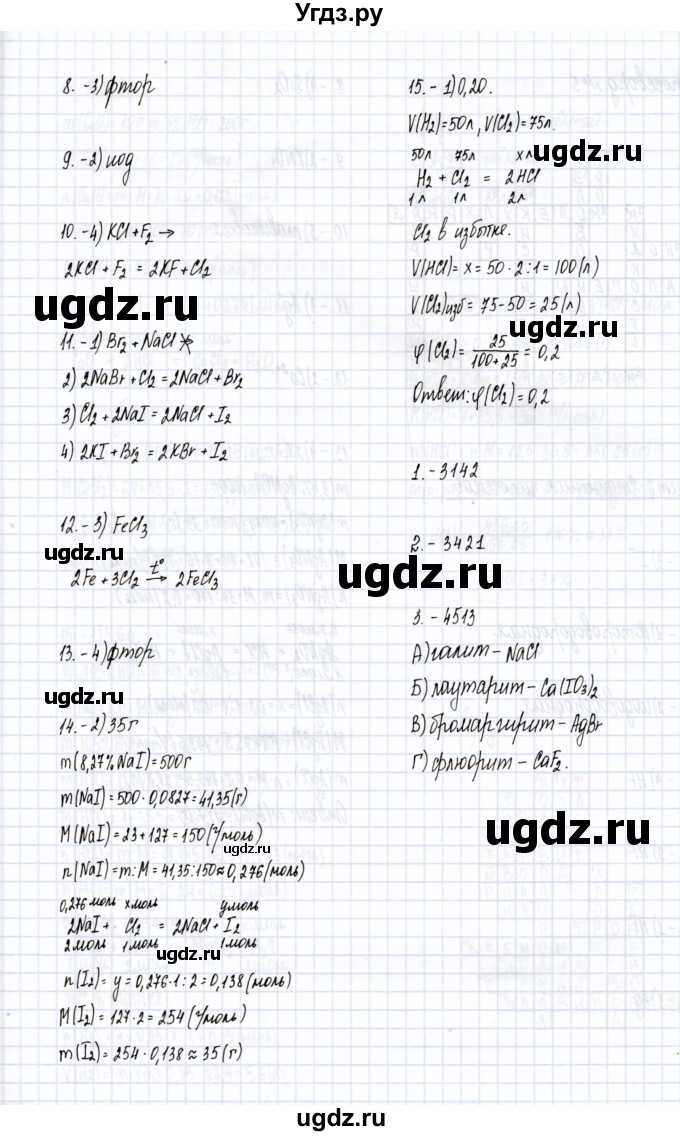 Угдз.ру
8. - 3) фтор
9. - 2) иод
10. - 4) KCl + F₂ →
2KCl + F₂ = 2KF + Cl₂
ugdz.ru
11. - 1) Br₂ + NaCl ↛
2) 2NaBr + Cl₂ = 2NaCl + Br₂
3) Cl₂ + 2NaI = 2NaCl + I₂
4) 2KI + Br₂ = 2KBr + I₂
12. - 3) FeCl₃
ugdz.ru
t°
2Fe + 3Cl₂ → 2FeCl₃
13. - 4) фтор
ugdz.ru
14. - 2) 35 г
m(8,27% NaI) = 500 г
m(NaI) = 500 · 0,0827 = 41,35 (г)
M(NaI) = 23 + 127 = 150 (г/моль)
ugdz.ru
n(NaI) = m : M = 41,35 : 150 ≈ 0,276 (моль)
0,276 моль x моль y моль
2NaI + Cl₂ = 2NaCl + I₂
2 моль 1 моль 1 моль
ugdz.ru
n(I₂) = y = 0,276 · 1 : 2 = 0,138 (моль)
M(I₂) = 127 · 2 = 254 (г/моль)
m(I₂) = 254 · 0,138 ≈ 35 (г)
15. - 1) 0,20.
V(H₂) = 50 л, V(Cl₂) = 75 л.
50 л 75 л x л
ugdz.ru
H₂ + Cl₂ = 2HCl
1 л 1 л 2 л
Cl₂ в избытке.
V(HCl) = x = 50 · 2 : 1 = 100 (л)
V(Cl₂)изб = 75 - 50 = 25 (л)
ugdz.ru
φ(Cl₂) = 25/(100+25) = 0,2
Ответ: φ(Cl₂) = 0,2
1. - 3142
2. - 3421
ugdz.ru
3. - 4513
А) галит - NaCl
Б) лаутарит - Ca(IO₃)₂
В) бромаргирит - AgBr
Г) флюорит - CaF₂.
ugdz.ru
ugdz.ru